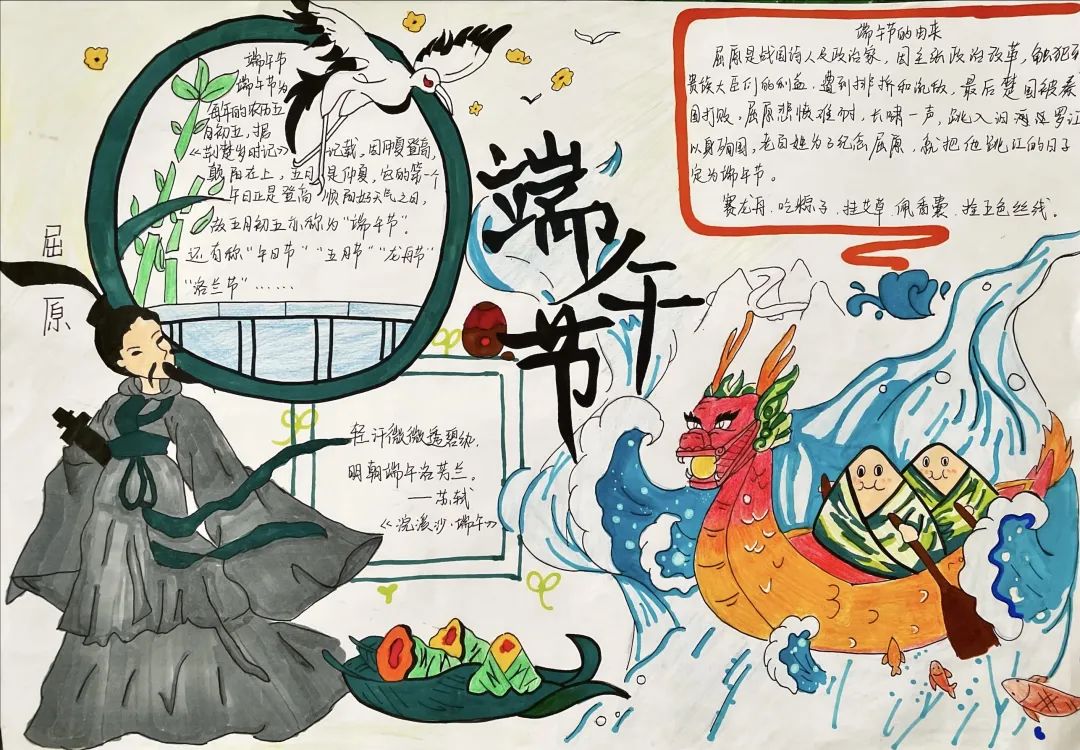 端午节
端午节为
每年的农历五
月初五，据
《荆楚岁时记》记载，因仲夏登高，
顺阳在上，五月是仲夏，它的第一个
午日正是登高顺阳好天气之日，
故五月初五亦称为“端午节”。
还有称“午日节”“五月节”“龙舟节”
“浴兰节”……
屈原
端午节
端午节的由来
屈原是战国诗人是政治家，因主张政治改革，触犯到
贵族大臣们的利益，遭到排挤和流放，最后楚国被秦
国打败，屈原悲愤难耐，长啸一声，跳入汨罗江
以身殉国，老百姓为了纪念屈原，就把他跳江的日子
定为端午节。
赛龙舟、吃粽子、挂艾草、佩香囊、拴五色丝线。
轻汗微微透碧纨，
明朝端午浴芳兰。
——苏轼
《浣溪沙·端午》